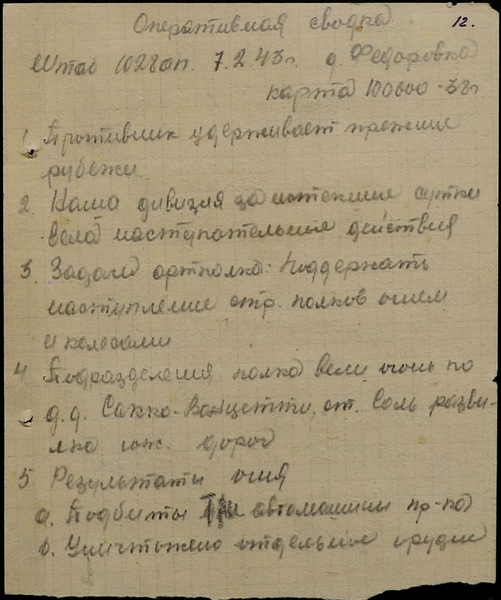 12.
Оперативная сводка
Штаб 1028 ап. 7.2.43г. д. Федоровка
карта 100000-38г
1 Противник удерживает прежние
рубежи.
2 Наша дивизия за истекшие сутки
вела наступательные действия
3 Задача артполка: поддержать
наступление стр. полков огнем
и колесами
4 Подразделения полка вели огонь по
д.д. Сакко-Ванцетти, ст. Соль разви-
лка юж. дорог
5 Результаты огня
а. Подбиты три автомашины пр-ка
б. Уничтожено отдельное орудие